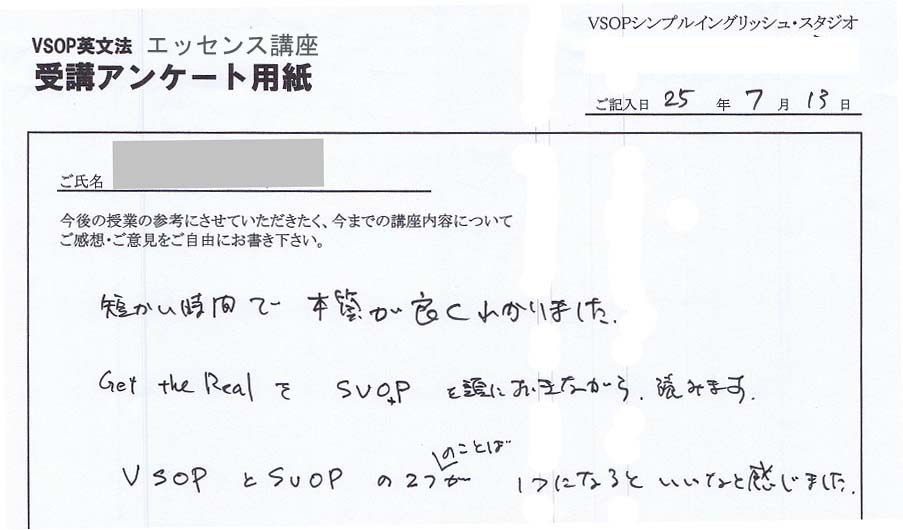 VSOPシンプルイングリッシュ・スタジオ
VSOP英文法 エッセンス講座
受講アンケート用紙
ご記入日 25 年 7 月 13 日
ご氏名
今後の授業の参考にさせていただきたく、今までの講座内容について
ご感想・ご意見をご自由にお書き下さい。
短かい時間で 本質が良くわかりました.
Get the Real を SVO+P を頭におきながら、読みます.
のことば
VSOP と SVOP の2つが 1つになるといいなと感じました.